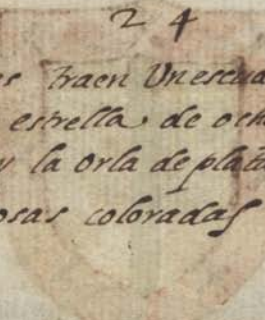 24
es traen Un escud
estrella de och
y la orla de plata
osas coloradas